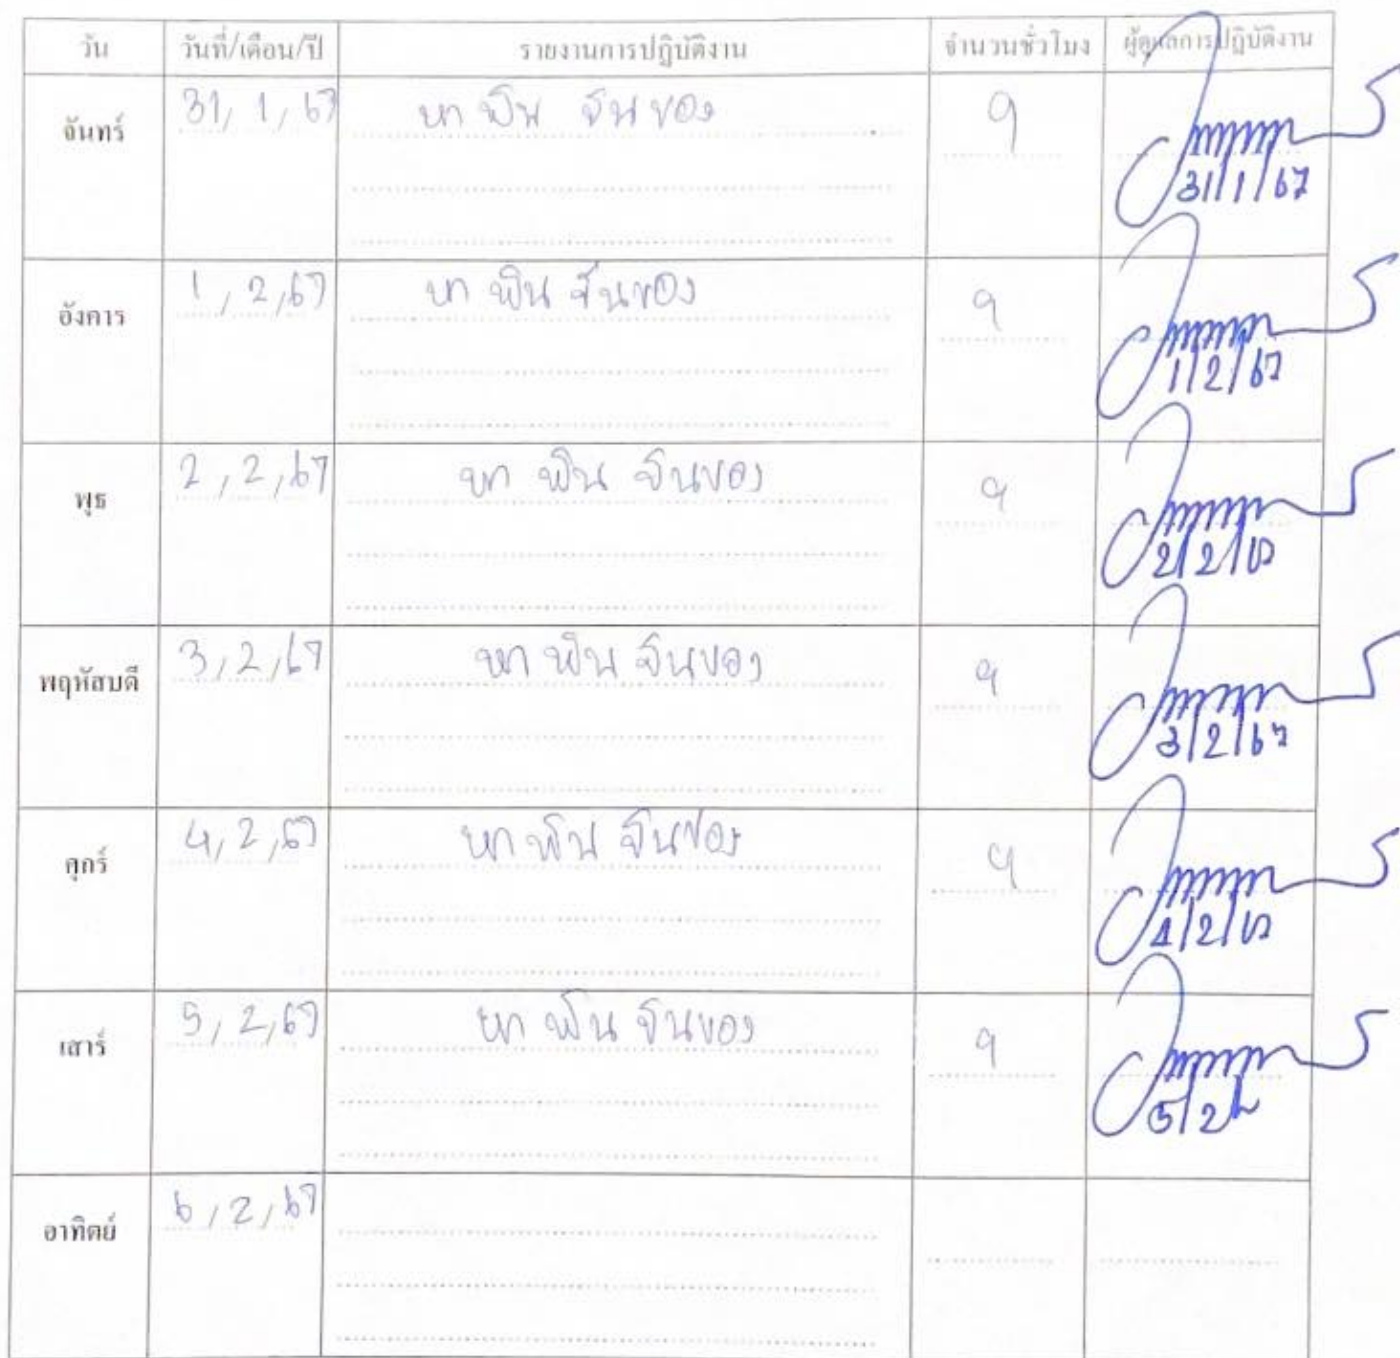 วัน วันที่/เดือน/ปี รายงานการปฏิบัติงาน จำนวนชั่วโมง ผู้ดูแลการปฏิบัติงาน
จันทร์ 31, 1, 67 หา พิน จีนของ 9
31/1/67
อังคาร 1, 2, 67 หา พิน จีนของ 9
1/2/67
พุธ 2, 2, 67 หา พิน จีนของ 9
2/2/67
พฤหัสบดี 3, 2, 67 หา พิน จีนของ 9
3/2/67
ศุกร์ 4, 2, 67 หา พิน จีนของ 9
4/2/67
เสาร์ 5, 2, 67 หา พิน จีนของ 9
5/2
อาทิตย์ 6, 2, 67